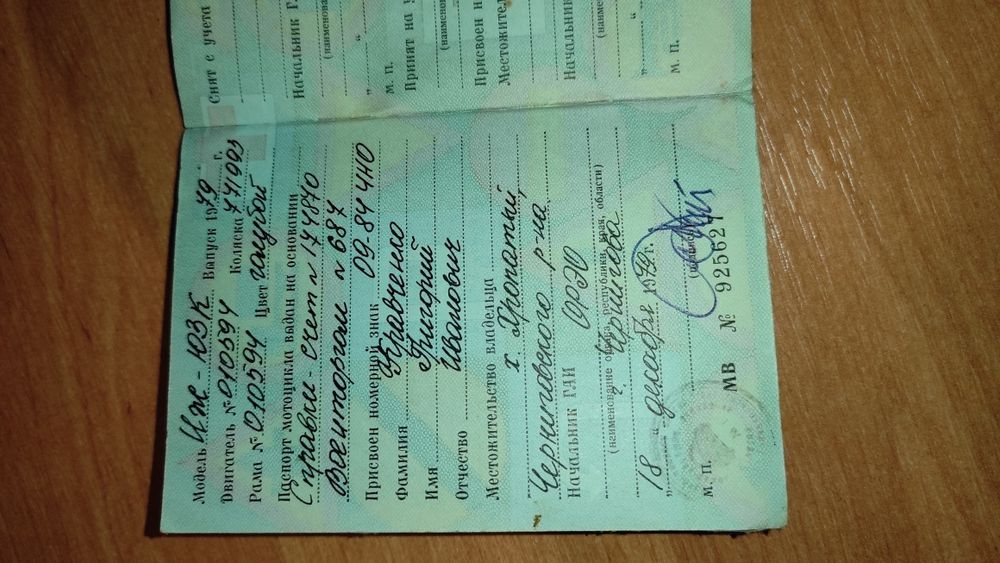 Модель Иж-ЮЗК Выпуск 1979 г.
Двигатель № 010594 Коляска 771993
Рама № 010594 Цвет голубой
Паспорт мотоцикла выдан на основании
Справки-счет № 174870
Военторгом № 687
Присвоен номерной знак 09-84 ЧНО
Фамилия Кравченко
Имя Григорий
Отчество Иванович
Местожительство владельца
х. Хропатый,
Черниговского р-на
Начальник ГАИ ОРЭО
г. Чернигова
(наименование города, республики, края, области)
18 " декабря 1979 г.
М. П. (подпись)
МВ № 925627
Снят с учета
Начальник Г
(наименова
„ “
М. П.
Принят на у
(наименован
Присвоен н
Местожител
Начальник
(наимено
„ “
М. П.